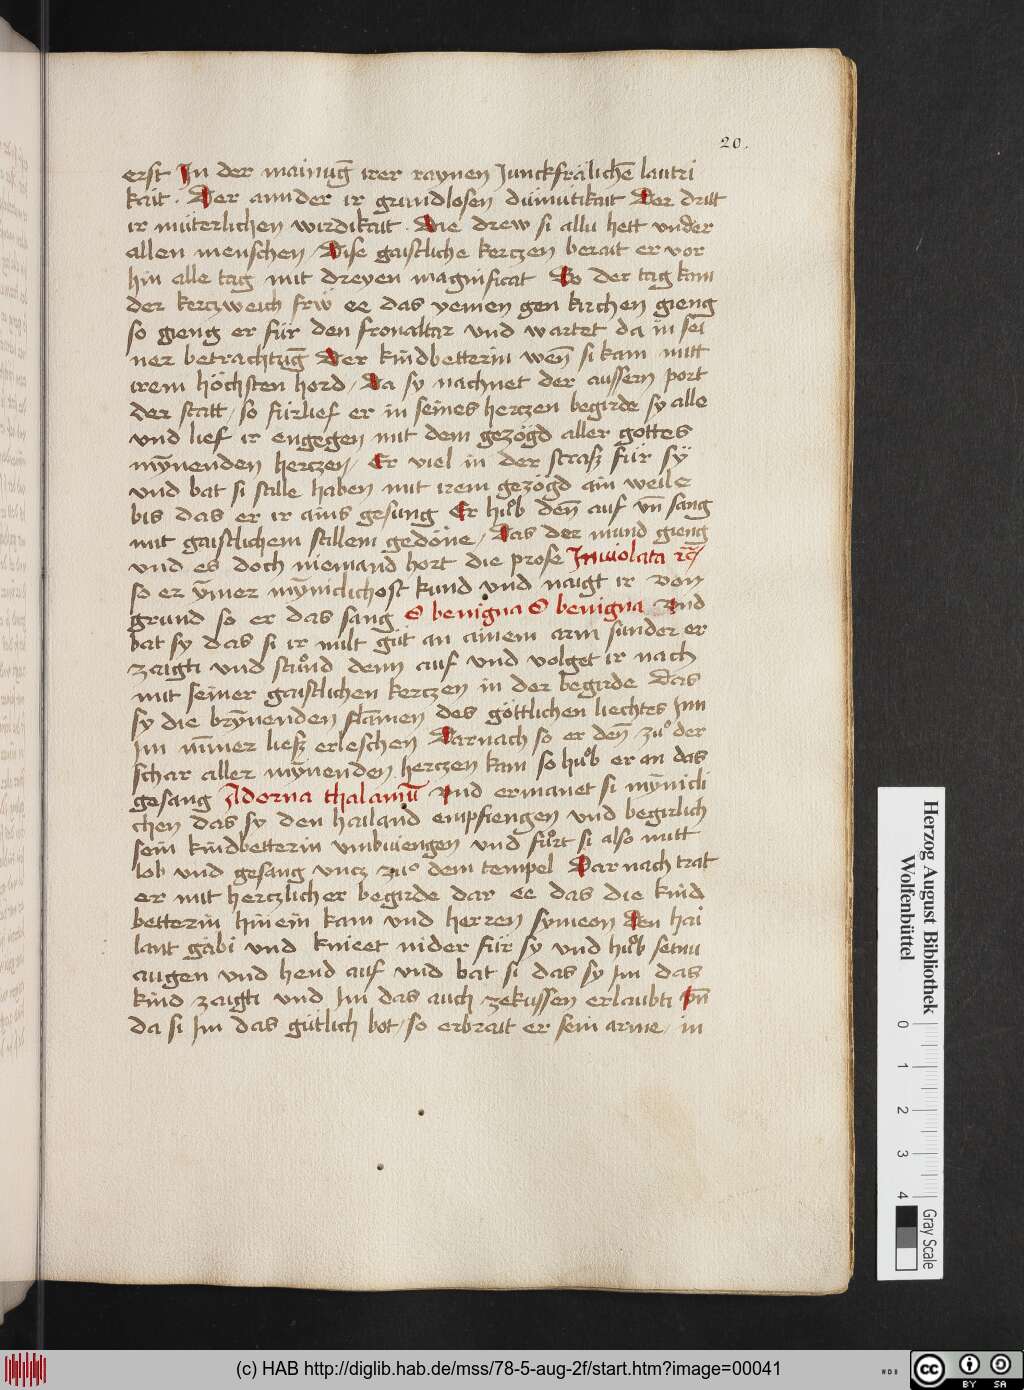 20.
erst In der mainug̅ irer raynen Junckfrälichē lautri
kait · Der annder ir grundlosen dümütikait Der dritt
ir müterlichen wirdikait · Die drew si allu hett vnder
allen menschen / Dise gaistliche kerczen berait er vor
hin alle tag mit dreyen magnificat So der tag kam
der kerczweich frw̎ ee das yemen gen kirchen gieng
so gieng er für den fronaltar vnd wartet da in sei
ner betrachtūg Der kindbetterin wen̄ si kam mitt
irem höchsten hord / Da sy nachnet der aussern port
der statt / so fürlief er in seines herczen begirde sy alle
vnd lief ir engegen mit dem gezögd aller gottes
mȳnenden herczen / Er viel in der straß für sÿ
vnd bat si stille haben mit irem gezögd ain weile
bis das er ir ains gesung Er hůb den̄ auf vn̄ sang
mit gaistlichem stillem gedöne / Das der mund gieng
vnd es doch niemand hort die prose Inuiolata rc̄
so er ȳmer mȳniclichost kund vnd naigt ir von
grund so er das sang O benigna O benigna Vnd
bat sy das si ir milt güt an ainem arm sünder er
zaigti vnd stůnd denn auf vnd volget ir nach
mit seiner gaistlichen kerczen in der begirde Das
sy die brȳnenden flāmen des göttlichen liechtes Inn
Im nīmer ließ erleschen Darnach so er den̄ zů der
schar aller mȳnenden herczen kam so hůb er an das
gesang Adorna thalamū Vnd ermanet si mȳnicli
chen das sy den hailand empfiengen vnd begirlich
sein kindbetterin vmbuiengen vnd fůrt si also mitt
lob vnd gesang vncz zů dem tempel Dar nach trat
er mit herczlicher begirde dar ee das die kind
betterin hinein kam vnd herren symeon den hai
lant gäbi vnd knieet nider für sy vnd hůb seinu
augen vnd hend auf vnd bat si das sy Im das
kind zaigti vnd Im das auch zekussen erlaubti vn̄
da si Im das gütlich bot / so erbrait er sein arme / in
Herzog August Bibliothek
Wolfenbüttel
0 1 2 3 4
Gray Scale
(c) HAB http://diglib.hab.de/mss/78-5-aug-2f/start.htm?image=00041
WDB
CC BY SA